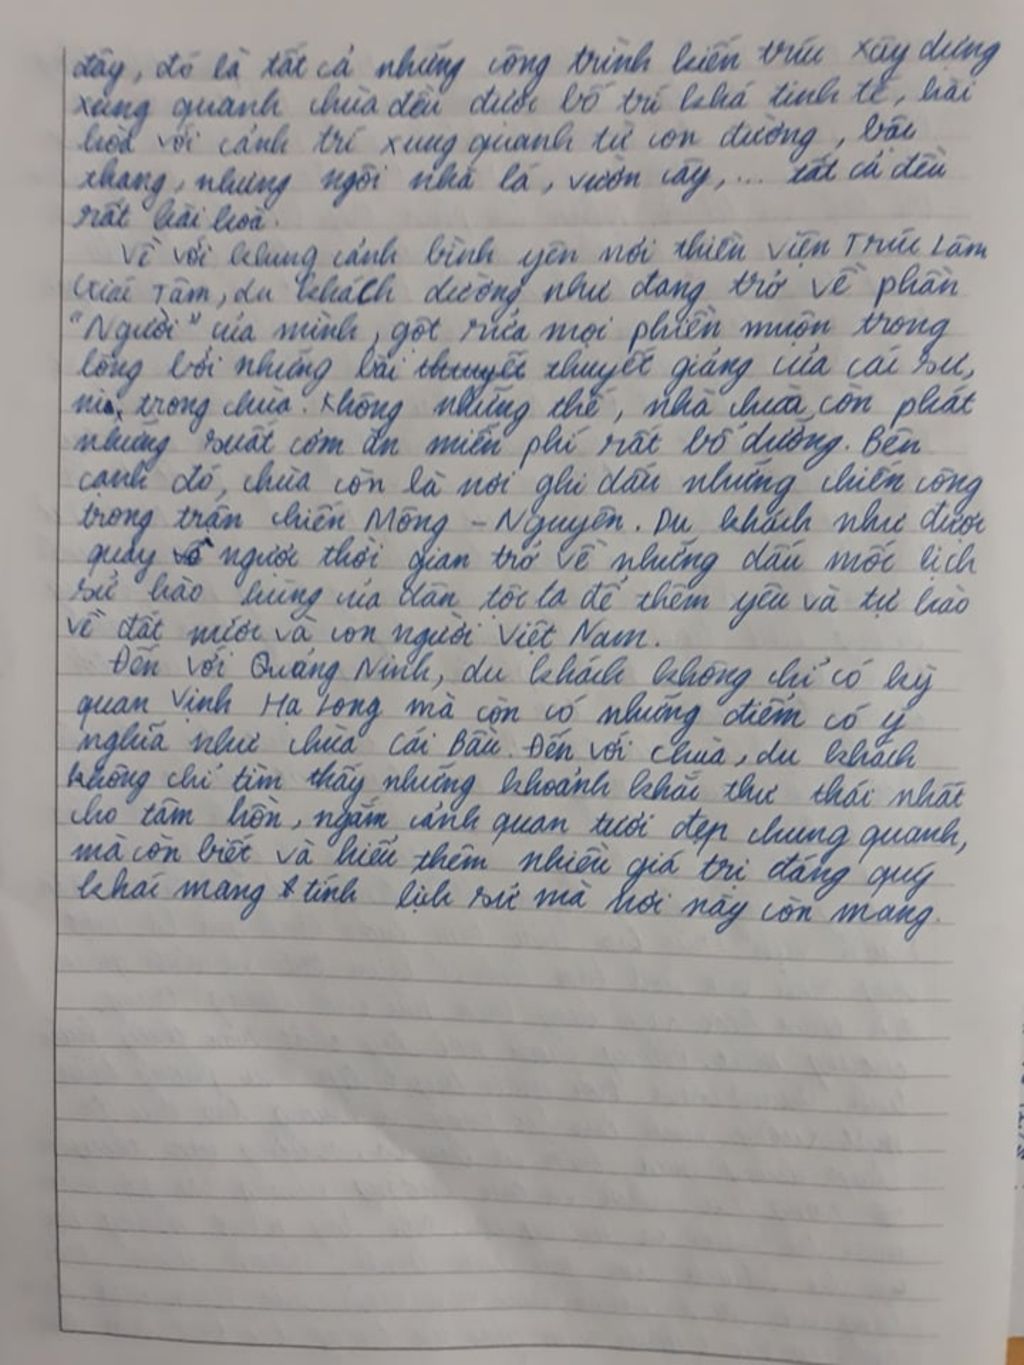 đây, đó là tất cả những công trình kiến trúc xây dựng
xung quanh chùa đều được bố trí khá tinh tế, hài
hoà với cảnh trí xung quanh từ con đường, bậc
thang, những ngôi nhà lá, vườn cây,... tất cả đều
rất hài hoà.
Về với khung cảnh bình yên nơi thiền viện Trúc Lâm
Giác Tâm, du khách dường như đang trở về phần
"Người" của mình, gột rửa mọi phiền muộn trong
lòng bởi những bài thuyết giảng của các sư,
ni, trong chùa. Không những thế, nhà chùa còn phát
những suất cơm ăn miễn phí rất bổ dưỡng. Bên
cạnh đó, chùa còn là nơi ghi dấu những chiến công
trong trận chiến Mông - Nguyên. Du khách như được
quay ngược thời gian trở về những dấu mốc lịch
sử hào hùng của dân tộc ta để thêm yêu và tự hào
về đất nước và con người Việt Nam.
Đến với Quảng Ninh, du khách không chỉ có kỳ
quan Vịnh Hạ Long mà còn có những điểm có ý
nghĩa như chùa Cái Bầu. Đến với chùa, du khách
không chỉ tìm thấy những khoảnh khắc thư thái nhất
cho tâm hồn, ngắm cảnh quan tươi đẹp chung quanh,
mà còn biết và hiểu thêm nhiều giá trị đáng quý
khác mang tính lịch sử mà nơi này còn mang.